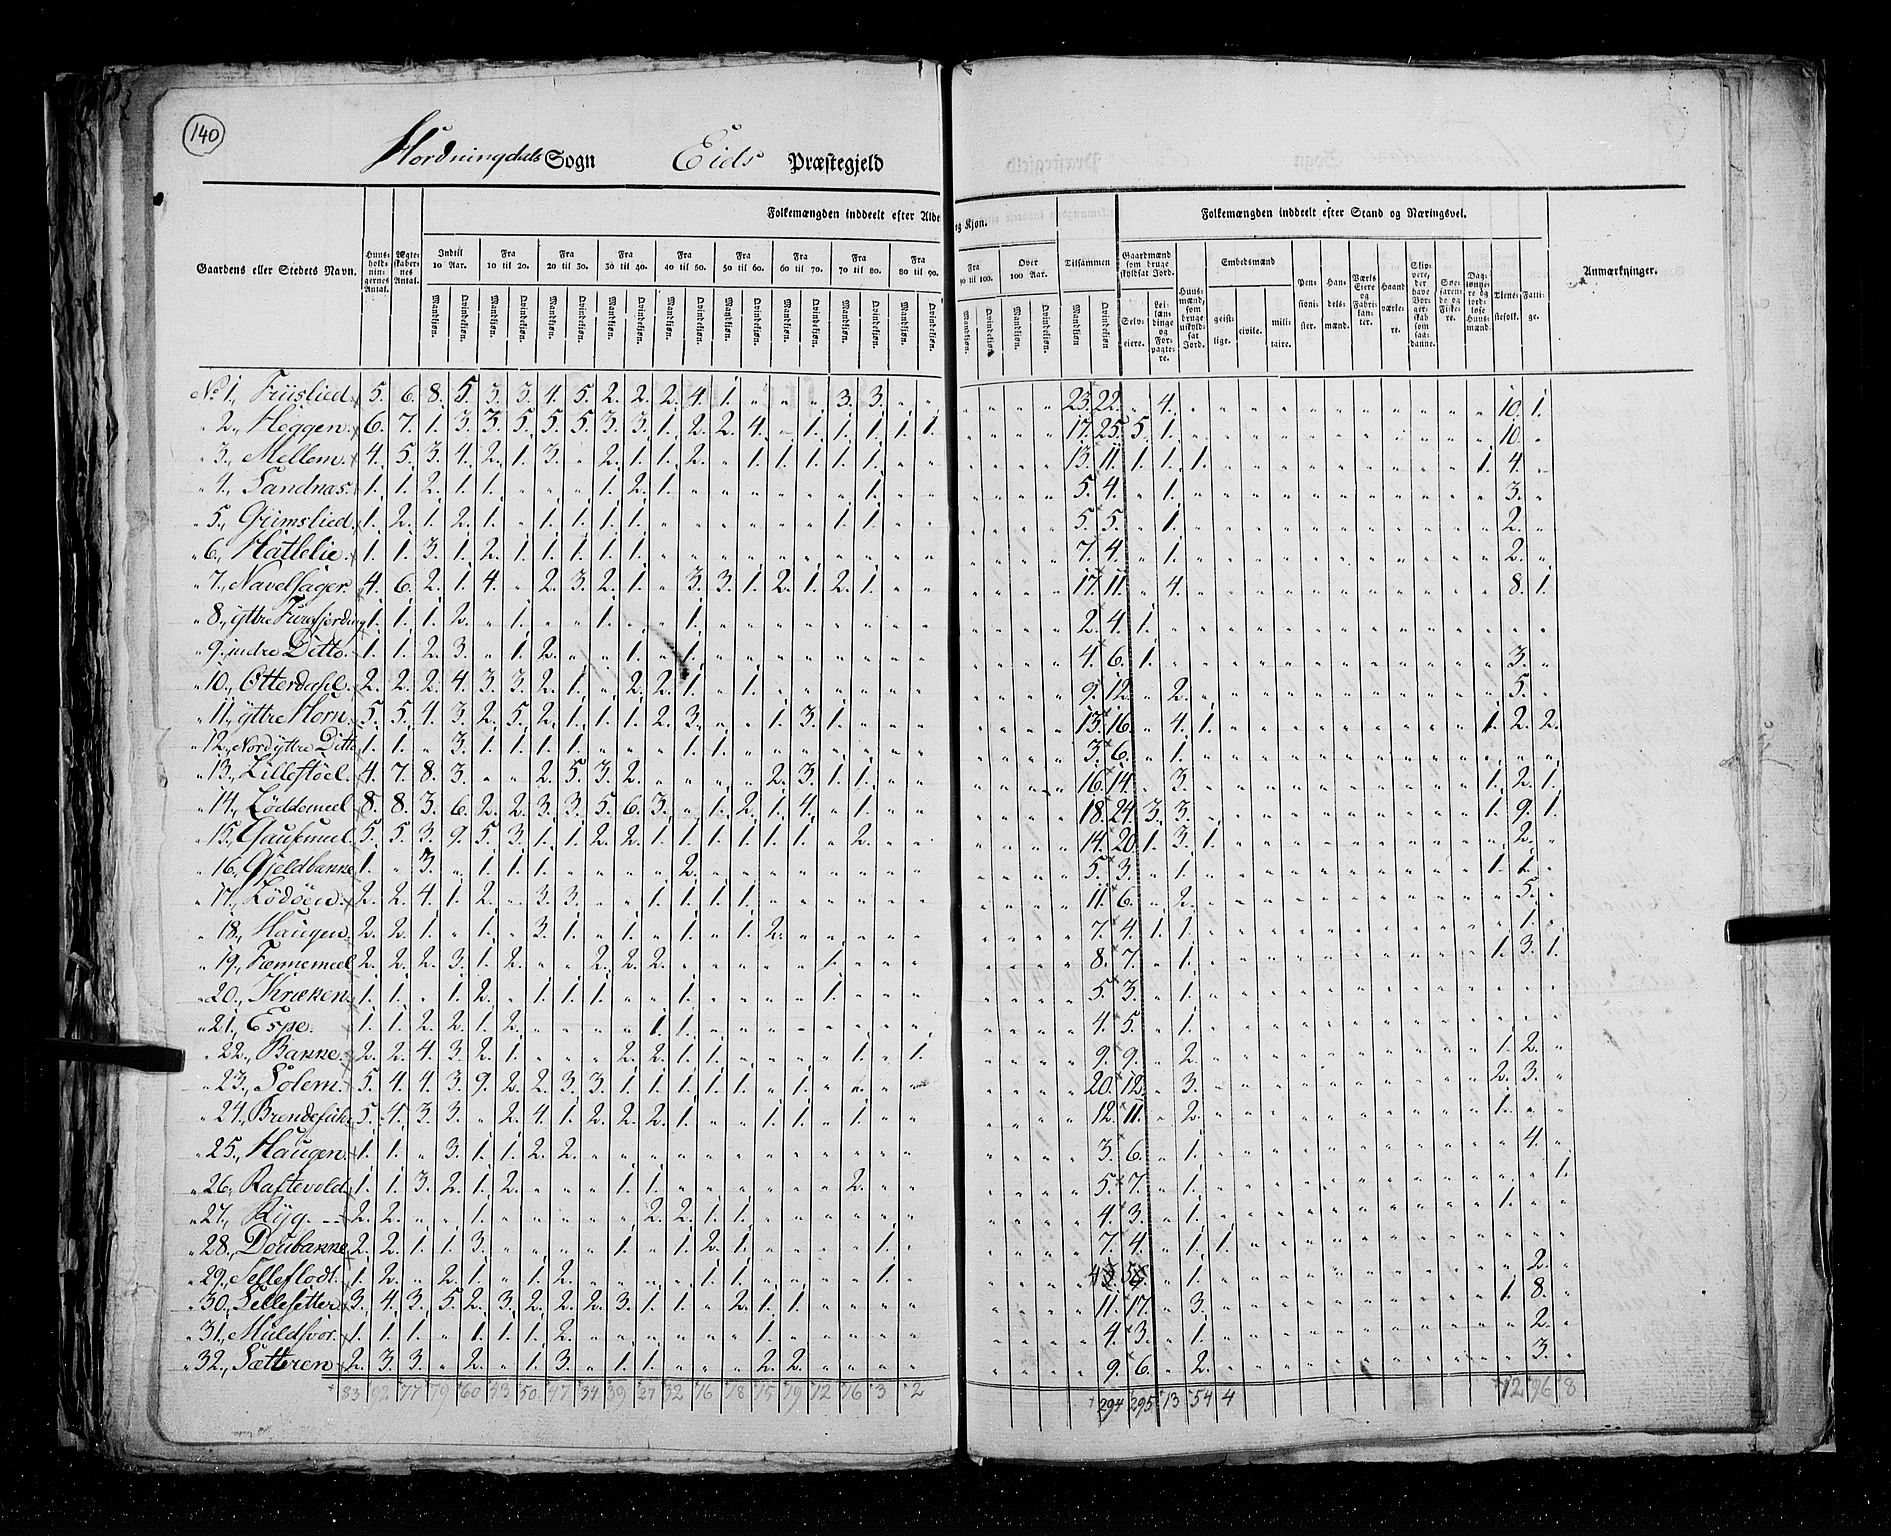 140
Hordningdals Sogn Eids Præstegjeld
Gaardens eller Stedets Navn. Huus-hold-nin-gernes Antal. Ægte-skaber-nes Antal. Folkemængden inddeelt efter Alde
og Kjøn. Tilsammen Folkemængden inddeelt efter Stand og Næringsvei. Anmærkninger.
Indtil 10 Aar. Fra 10 til 20. Fra 20 til 30. Fra 30 til 40. Fra 40 til 50. Fra 50 til 60. Fra 60 til 70. Fra 70 til 80. Fra 80 til 90.
Fra 90 til 100. Over 100 Aar. Gaardmænd som bruge skyldsat Jord. Huus-mænd, som bruge uskyld-sat Jord. Embedsmænd Pen-sioni-ster. Han-dels-mænd. Haand værke-re. Tjene-stefolk. Fatti-ge.
Mandkjøn. Qvindekjøn. Mandkjøn. Qvindekjøn. Mandkjøn. Qvindekjøn. Mandkjøn. Qvindekjøn. Mandkjøn. Qvindekjøn. Mandkjøn. Qvindekjøn. Mandkjøn. Qvindekjøn. Mandkjøn. Qvindekjøn. Mandkjøn. Qvindekjøn.
Mandkjøn. Qvindekjøn. Mandkjøn. Qvindekjøn. Mandkjøn Qvindekjøn. Selv-eiere. Lei-læn-dinge og For-pagte-re. geist-lige. civile. mili-taire.
No 1, Friislied 5. 6. 8. 5. 3. 3. 4. 5. 2. 2. 2. 4. 1. " " " 3. 3. " " 23. 22. " 4. 10. 1.
" 2, Heggen 6. 7. 1. 3. 3. 5. 5. 5. 3. 3. 1. 2. 2. 4. " 1. 1. 1. 1. 1. 17. 25. 5. 1. 10. "
" 3, Mellem 4. 5. 3. 4. 2. 1. 3. " 2. 1. 1. 2. " 1. 1. 1. 1. 1. " " 13. 11. 1. 1. 1. 1. 4. "
" 4, Sandnæs 1. 1. 2. 1. 1. " " " 1. 2. 1. " " " " " " 1. " " 5. 4. " 1. 3. "
" 5, Grimslied 1. 2. 1. 2. 1. " 1. 1. 1. 1. " " " " " " 1. 1. " " 5. 5. " 1. 2. "
" 6, Hattelie 1. 1. 3. 1. 2. 1. 1. 1. 1. 1. " " " " " " " " " " 7. 4. " 1. 2. "
" 7, Navelsager 4. 6. 2. 1. 4. " 2. 3. 2. 1. " 3. 3. 1. 2. 1. 2. 1. " " 17. 11. " 4. 8. 1.
" 8, yttre 1. 1. 1. 2. " 1. " " 1. " " 1. " " " " " " " " 2. 4. 1. " "
" 9, indre Ditto 1. 1. 2. 3. " 1. 2. " " 1. " 1. " " " " " " " " 4. 6. 1. 3. "
" 10, Otterdahl 2. 2. 2. 4. 3. 3. 2. 1. " 2. 2. 1. " 1. " " " " " " 9. 12. " 2. 5. "
" 11, yttre Horn 5. 5. 4. 3. 2. 5. 2. 1. 1. 1. 2. 3. " " 1. 3. 1. " " " 13. 16. " 4. 1. 1. 2. 2.
" 12, Nordyttre Ditto 1. 1. " 3. 1. 1. 1. 1. " " " 1. 1. " " " " " " " 3. 6. " 1. " "
" 13, Lillestöel 4. 7. 8. 3. " " 2. 5. 3. 2. " " " " 2. 3. 1. 1. " " 16. 14. " 3. 1. 2. 1.
" 14, Löddemeel 8. 8. 3. 6. 2. 2. 3. 3. 5. 6. 3. " 1. 2. 1. 4. " 1. " " 18. 24. 3. 3. 1. 9. 1.
" 15, 5. 5. 3. 9. 5. 3. 1. 1. 2. 2. 1. 1. 1. 1. 1. 1. " 2. " " 14. 20. 1. 3. 1. 2. "
" 16, Gjeldbakke 1. " 3. " 1. 1. 1. " " " " 2. " " " " " " " " 5. 3. " 1. 1. 1. "
" 17, Lödöen 2. 2. 4. 1. 2. " 3. 3. " " 1. 1. 1. 1. " " " " " " 11. 6. " 2. 5. "
" 18, Haugen 2. 2. 1. " 1. " 3. 1. " 1. " 1. " 1. 2. " " " " " 7. 4. 1. 1. 1. "
" 19, 2. 2. 2. 3. 1. 2. " " 2. 2. 2. " " " " " 1. " " " 8. 7. " 1. 1. 3. 1.
" 20, Kræken 1. 1. " 1. 2. " 1. 1. 1. " " 1. " " " " 1. " " " 5. 3. " 1. " "
" 21, Espe 1. 1. 2. 2. 1. 2. " " " " 1. 1. " " " " " " " " 4. 5. " 1. " "
" 22, Bakke 2. 2. 4. 3. 2. 1. " " " 2. 2. 1. 1. " " " " 1. " 1. 9. 9. " 2. 1. 2. "
" 23, Solem 5. 4. 4. 3. 9. 2. 2. 3. 3. 1. 1. 1. 1. 1. " 1. " " " " 20. 12. " 3. 2. 3. "
" 24, 5. 4. 3. 3. " 2. 4. 1. 2. 2. 2. 1. " " 1. 1. " 1. " " 12. 11. " 2. 1. " "
" 25, Haugen 1. 1. " 3. 1. 1. 2. 2. " " " " " " " " " " " " 3. 6. " 1. 4. "
" 26, Raftevold 1. 1. 3. 2. 1. 2. " " " 1. 1. " " " " " " 2. " " 5. 7. " 1. " 1.
" 27, Ryg 2. 2. " " 1. " " " " " 2. 2. 1. 1. " " " " " " 4. 3. " 1. 1. " "
" 28, Doubakke 2. 2. 1. 1. 3. " " " " 1. " 1. 2. 1. " " " " 1. " 7. 4. " 1. 1. " "
" 29, Selleflodt 1. 2. " 2. 1. " 1. 2. " " " " 1. 1. " " " " 1. " 4 5 " 1. 2. "
" 30, Sellesetter 3. 4. 3. 5. 2. 3. 2. 2. 2. 3. 1. 1. " 2. 1. 1. " " " " 11. 17. " 3. 1. 8. "
" 31, Muldsvor 1. 1. 1. " 1. 1. 1. 2. " " " " " " 1. " " " " " 4. 3. " 1. 2. "
" 32, Sætteren 2. 3. 3. " 2. " 1. 3. " 1. 1. " " " 2. 2. " " " " 9. 6. " 2. 3. "
83 92 77 79 60 43 50 47 34 39 27 32 16 18 15 19 12 16 3 2 294 295 13 54 4 12 96 8